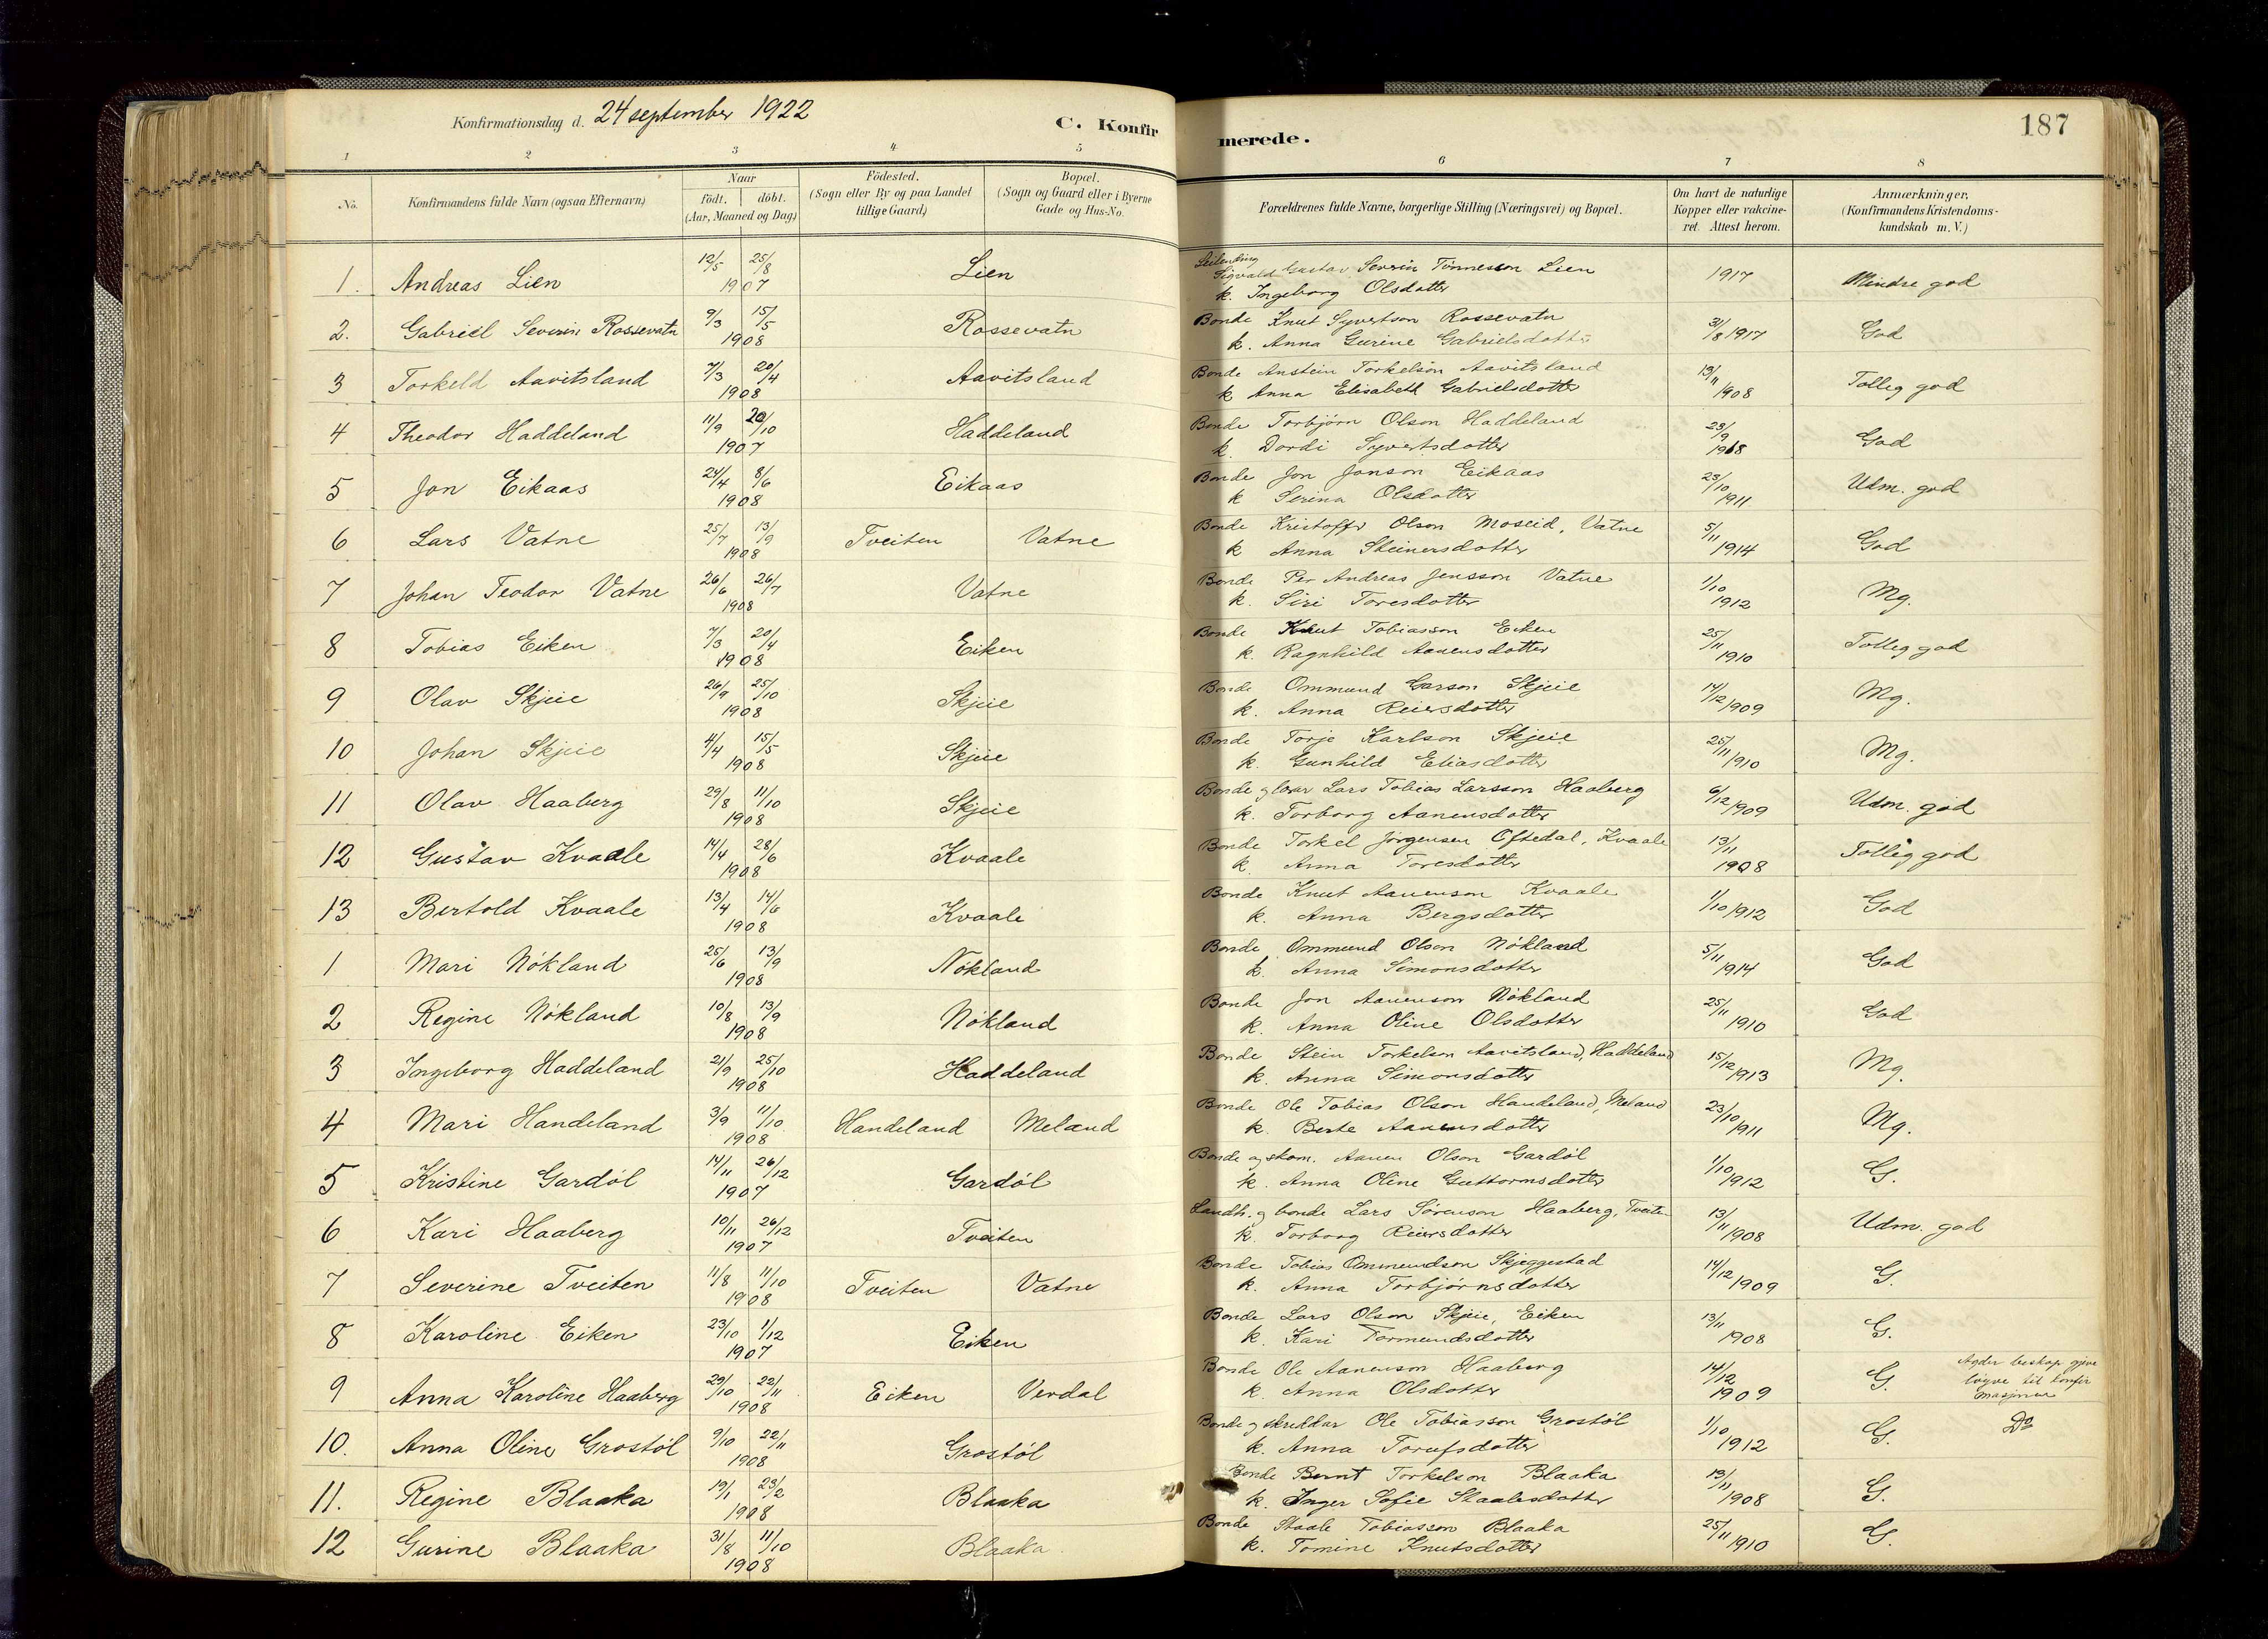 Konfirmationsdag d. 24 september 1922
C. Konfirmerede.
187
1 2 3 4 5 6 7 8
No. Konfirmandens fulde Navn (ogsaa Efternavn) Naar født. døbt. (Aar, Maaned og Dag) Fødested. (Sogn eller By og paa Landet tillige Gaard) Bopæl. (Sogn og Gaard eller i Byerne Gade og Hus-No. Forældrenes fulde Navne, borgerlige Stilling (Næringsvei) og Bopæl. Om havt de naturlige Kopper eller vakcineret. Attest herom. Anmærkninger, (Konfirmandens Kristendomskundskab m. V.)
1. Andreas Lien 12/5 25/8 1907 Lien Sigvald Gustav Severin Tønnesson Lien k. Ingeborg Olsdotter 1917 Mindre god
2. Gabriel Severin Rossevatn 9/3 15/5 1908 Rossevatn Bonde Knut Syvertson Rossevatn k. Anna Gurine Gabrielsdotter 31/8 1917 God
3 Torkeld Aavitsland 7/3 20/4 1908 Aavitsland Bonde Anstein Torkelson Aavitsland k Anna Elisabeth Gabrielsdotter 13/11 1908 Tolleg god
4 Theodor Haddeland 11/9 20/10 1907 Haddeland Bonde Torbjørn Olson Haddeland k. Dordi Syvertsdotter 23/9 1918 God
5 Jon Eikaas 24/4 8/6 1908 Eikaas Bonde Jon Jonson Eikaas k Serina Olsdotter 23/10 1911 Udm. god
6 Lars Vatne 25/7 13/9 1908 Tveiten Vatne Bonde Kristoffer Olson Moseid, Vatne k Anna Steinersdotter 5/11 1914 God
7 Johan Teodor Vatne 26/6 26/7 1908 Vatne Bonde Per Andreas Jensson Vatne k. Siri Toresdotter 1/10 1912 Mg.
8 Tobias Eiken 7/3 20/4 1908 Eiken Bonde Knut Tobiasson Eiken k. Ragnhild Aanensdotter 25/11 1910 Tolleg god
9 Olav Skjeie 26/9 25/10 1908 Skjeie Bonde Ommund Larson Skjeie k. Anna Reiersdotter 14/12 1909 Mg.
10 Johan Skjeie 4/4 15/5 1908 Skjeie Bonde Torje Karlson Skjeie k. Gunhild Eliasdotter 25/11 1910 Mg.
11 Olav Haaberg 29/8 11/10 1908 Skjeie Bonde g lærar Lars Tobias Larsson Haaberg k. Torborg Aanensdotter 6/12 1909 Udm. god
12 Gustav Kvaale 14/4 28/6 1908 Kvaale Bonde Torkel Jørgensen Oftedal, Kvaale k. Anna Toresdotter 13/11 1908 Tolleg god
13 Bertold Kvaale 13/4 14/6 1908 Kvaale Bonde Knut Aanenson Kvaale k. Anna Bergsdotter 1/10 1912 God
1 Mari Nökland 25/6 13/9 1908 Nökland Bonde Ommund Olson Nökland k. Anna Simonsdotter 5/11 1914 God
2 Regine Nökland 10/8 13/9 1908 Nökland Bonde Jon Aanenson Nökland k. Anna Oline Olsdotter 25/11 1910 God
3 Ingeborg Haddeland 21/9 25/10 1908 Haddeland Bonde Stein Torkelson Aavitsland, Haddeland k. Anna Simonsdotter 15/12 1913 Mg.
4 Mari Handeland 3/9 11/10 1908 Handeland Meland Bonde Ole Tobias Olson Handeland, Meland k. Berte Aanensdotter 23/10 1911 Mg.
5 Kristine Gardöl 14/11 26/12 1907 Gardöl Bonde og skom. Aanen Olson Gardöl k. Anna Oline Guttormsdotter 1/10 1912 G.
6 Kari Haaberg 10/11 26/12 1907 Tveiten Landh. g bonde Lars Sörenson Haaberg, Tveiten k. Torborg Reiersdotter 13/11 1908 Udm. god
7 Severine Tveiten 11/8 11/10 1908 Tveiten Vatne Bonde Tobias Ommundson Skjeggestad k. Anna Torbjørnsdotter 14/12 1909 G.
8 Karoline Eiken 23/10 1/12 1907 Eiken Bonde Lars Olson Skjeie, Eiken k. Kari Tormundsdotter 13/11 1908 G.
9 Anna Karoline Haaberg 29/10 22/11 1908 Eiken Verdal Bonde Ole Aanenson Haaberg k. Anna Olsdotter 14/12 1909 G. Agder biskop gjeve løyve til konfirmasjonen
10. Anna Oline Grostöl 9/10 22/11 1908 Grostöl Bonde g skreddar Ole Tobiasson Grostöl k. Anna 1/10 1912 G. Do
11. Regine Blaaka 19/1 23/2 1908 Blaaka Bonde Bernt Torkelson Blaaka k. Inger Sofie Staalesdotter 13/11 1908 G.
12 Gurine Blaaka 31/8 11/10 1908 Blaaka Bonde Staale Tobiasson Blaaka k. Tomine Knutsdotter 25/11 1910 G.